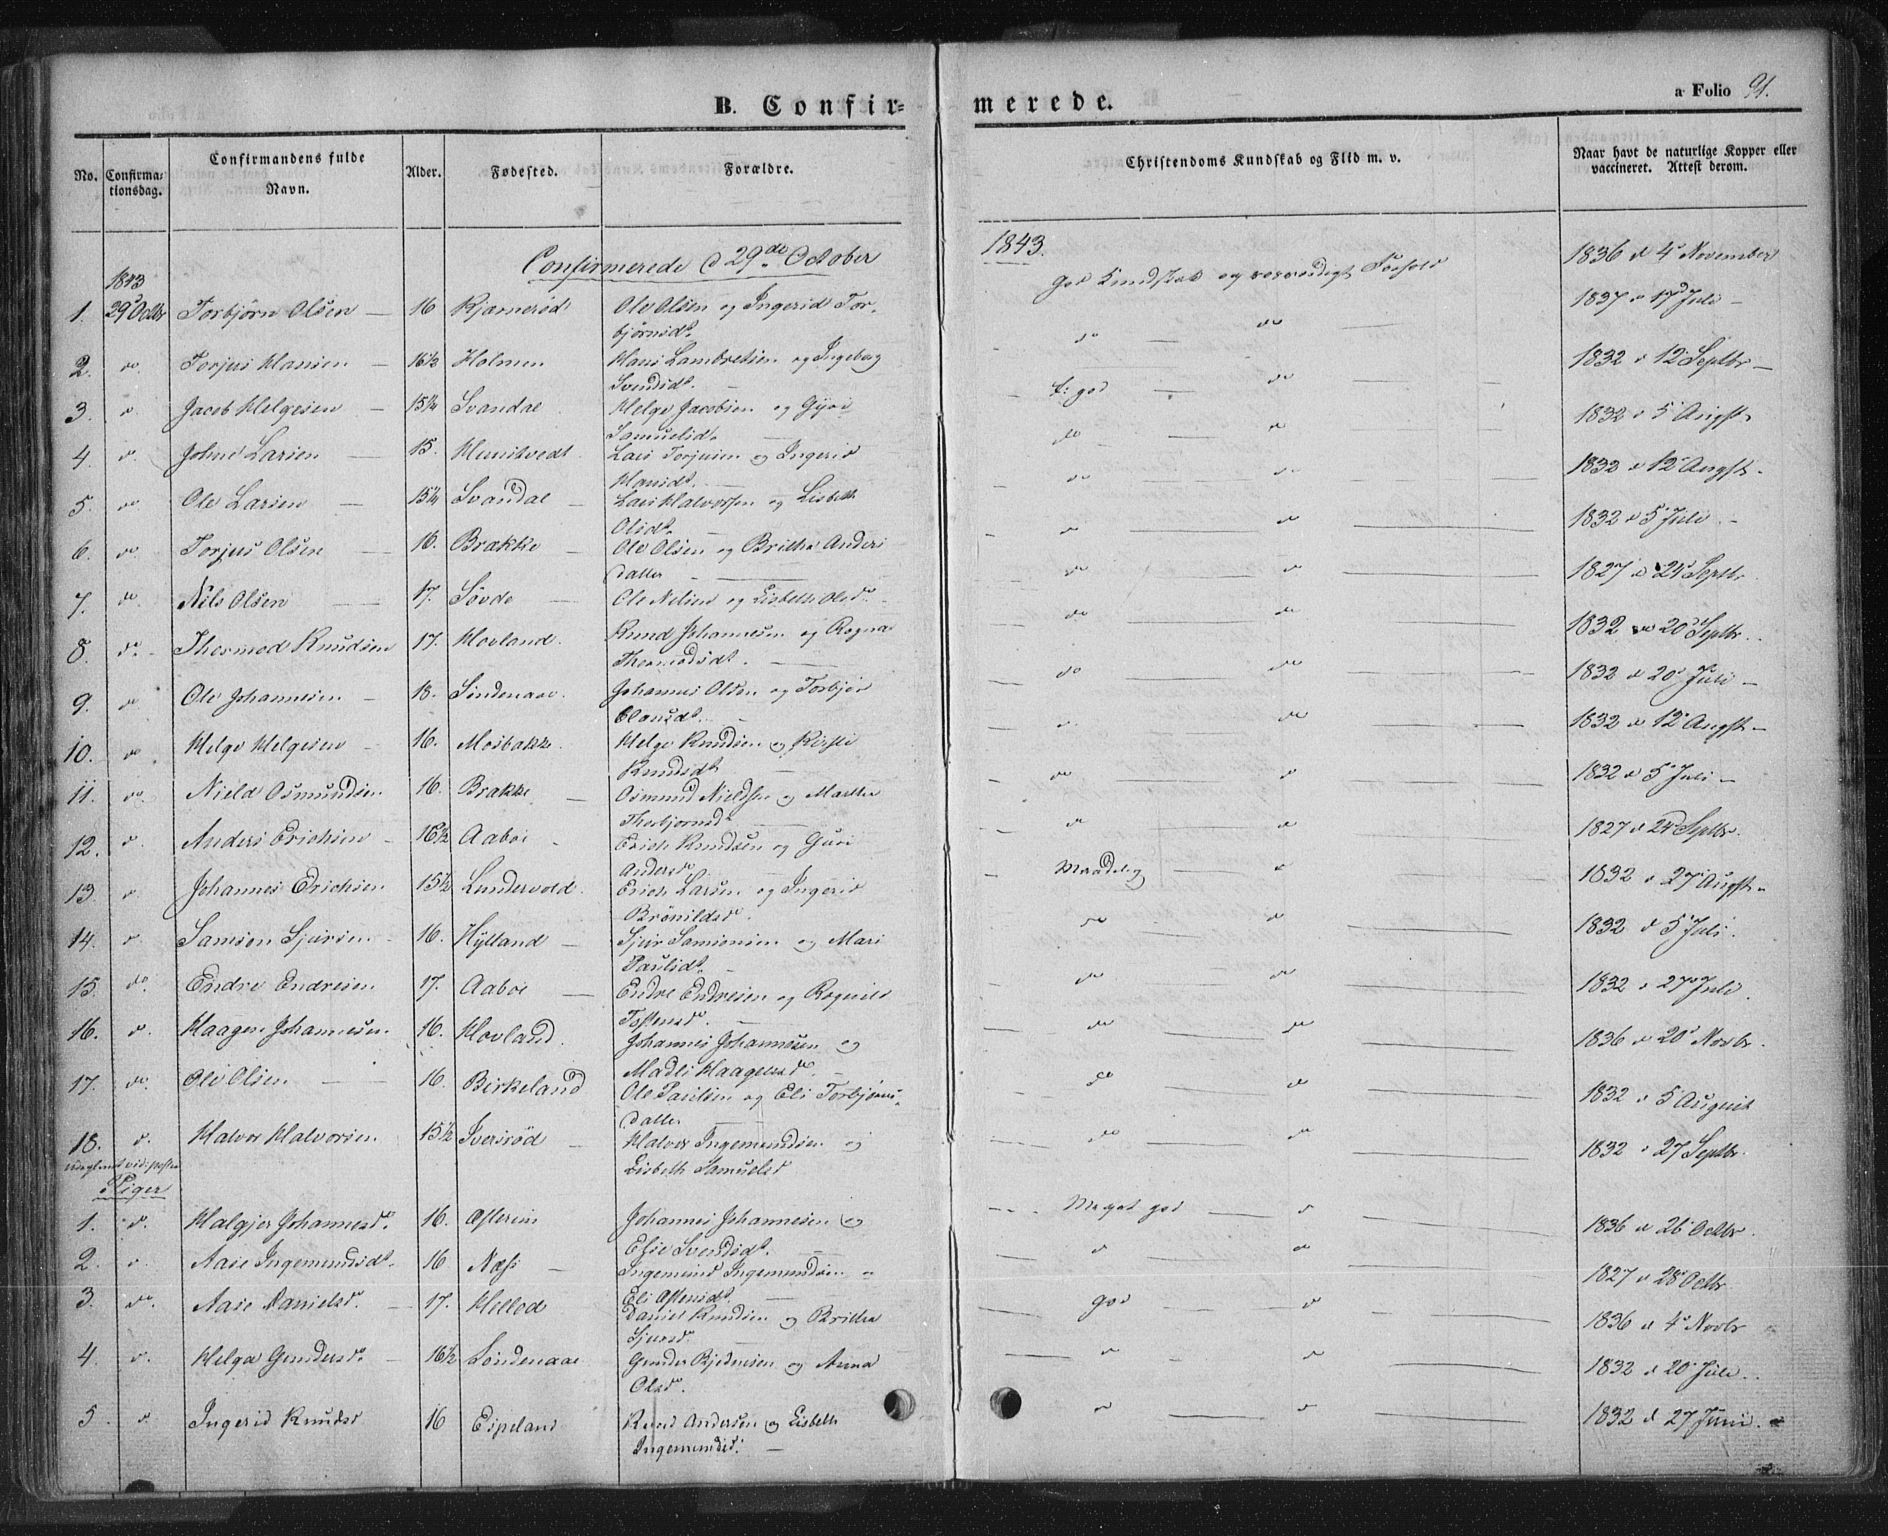 B. Confir=
merede.
a Folio 91.
No. Confirmationsdag. Confirmandens fulde Navn. Alder. Fødested. Forældre. Christendoms Kundskab og Flid m. v. Naar havt de naturlige Kopper eller vaccineret. Attest derom.
Confirmerede d 29de October 1843.
1843
1. 29 Octbr Torbjørn Olsen — 16 Kjærnerød Ole Olsen og Ingerid Tor- God Kundskab og Forhold 1836 d 4 November
bjørnsdt.
2. do Torjus Hansen — 16½ Holmen Hans Lambretsen og Ingeborg do do 1837 d 17 Juli —
Svendsdt. —
3. d Jacob Helgesen — 15½ Svandal Helge Jacobsen og Gyri t: god do 1832 d 12 Septbr —
Samuelsdt.
4. d. Johne Larsen — 15. Lars Torjusen og Ingerid do do 1832 d 5 Augst.
Hansdt.
5. do Ole Larsen — 15½ Svandal — Lars Halvorsen og Lisbeth do do 1832 d 12 Augst.
Olsdt.
6. do Torjus Olsen — 16. Brække — Ole Olsen og Britha Anders do do 1832 d 5 Juli. —
datter
7. do Nils Olsen — 17. Søvde — Ole Nilsen og Lisbeth Olsd. do do 1827 d 24 Septbr
8. do. Thormod Knudsen 17. Hovland. Knud Johannesen og Ragna do do 1832 d 20 Septbr.
Thormodsdt. —
9. do Ole Johannesen — 18. Søndenaae. Johannes Olsen og Torbjør do do 1832 d 20 Juli —
Clausdt.
10. do Helge Helgesen — 16. Mosbakke. Helge Knudsen og Kirsti d. do 1832 d 12 Augst —
Knudsdt
11. do Nield Osmundsen 16. Brakke — Osmund Nieldsen og Martha do d 1832 d 5 Juli —
Thorbjørnsd.
12. d. Anders Erichsen — 16½ Aaboe — Erich Knudsen og Guri d d 1827 d 24 Septbr.
Andersd.
13 d. Johannes Erichsen 15½ Lundervold. Erich Larsen og Ingerid Maadelig d 1832 d 27 Augst.
14. d. Samson Sjursen — 16. Hylland — Sjur Samsonsen og Mari do d 1832 d 5 Juli.
Paulsdt.
15. do. Endre Endresen 17. Aaboe — Endre Endresen og do d 1832 d 27 Juli.
16. d. Haagen Johannesen 16. Hovland. Johannes Johannesen og do do 1836 d 20 Novbr.
Madli Haagensd.
17. do. Ole Olsen — 16. Birkeland Ole Paulsen og Eli Torbjørns- do do 1832 d 5 August
datter —
18. d. Halvor Halvorsen 15½ Iversrød — Halvor Ingemundsen og do do 1832 d 27 Septbr.
Lisbeth Samuelsd
Piger
1. d. Halgjer Johannesd. 16. Johannes Johannesen og Meget god d 1836 d 26 Octbr.
Else Svendsdt.
2. d. Aase Ingemundsdt. 16 Næss — Ingemund Ingemundsen — d d 1827 d 28 Octbr.
3. do. Aase Danielsd. — 17. Helled — Daniel Knudsen og Britha god d 1836 d 4 Novbr
Sjursd.
4 d. Helga Gundersd. — 16½ Søndenaae Gunder og Anna d d 1832 d 20 Juli.
Olsd.
5. d. Ingerid Knudsd 16 Espeland Knud Andersen og Lisbeth d d 1832 d 27 Juni.
Ingemundsd. —